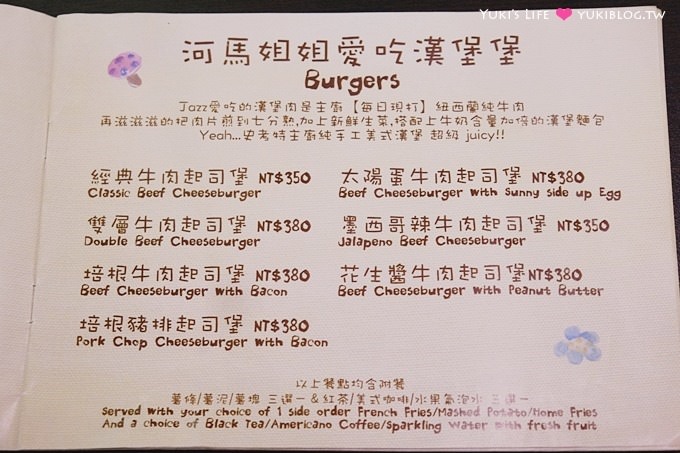 Yuki's Life ♥ yukiblog.tw
河馬姐姐愛吃漢堡堡
Burgers
Jazz愛吃的漢堡肉是主廚【每日現打】紐西蘭純牛肉
再滋滋滋的把肉片煎到七分熟,加上新鮮生菜,搭配上牛奶含量加倍的漢堡麵包
Yeah...史考特主廚純手工美式漢堡 超級 juicy!!
經典牛肉起司堡 NT$350
Classic Beef Cheeseburger
雙層牛肉起司堡 NT$380
Double Beef Cheeseburger
培根牛肉起司堡 NT$380
Beef Cheeseburger with Bacon
培根豬排起司堡 NT$380
Pork Chop Cheeseburger with Bacon
太陽蛋牛肉起司堡 NT$380
Beef Cheeseburger with Sunny side up Egg
墨西哥辣牛肉起司堡 NT$350
Jalapeno Beef Cheeseburger
花生醬牛肉起司堡 NT$380
Beef Cheeseburger with Peanut Butter
以上餐點均含附餐
薯條/薯泥/薯塊 三選一 & 紅茶/美式咖啡/水果氣泡水 三選一
Served with your choice of 1 side order French Fries/Mashed Potato/Home Fries
And a choice of Black Tea/Americano Coffee/Sparkling Water with fresh fruit